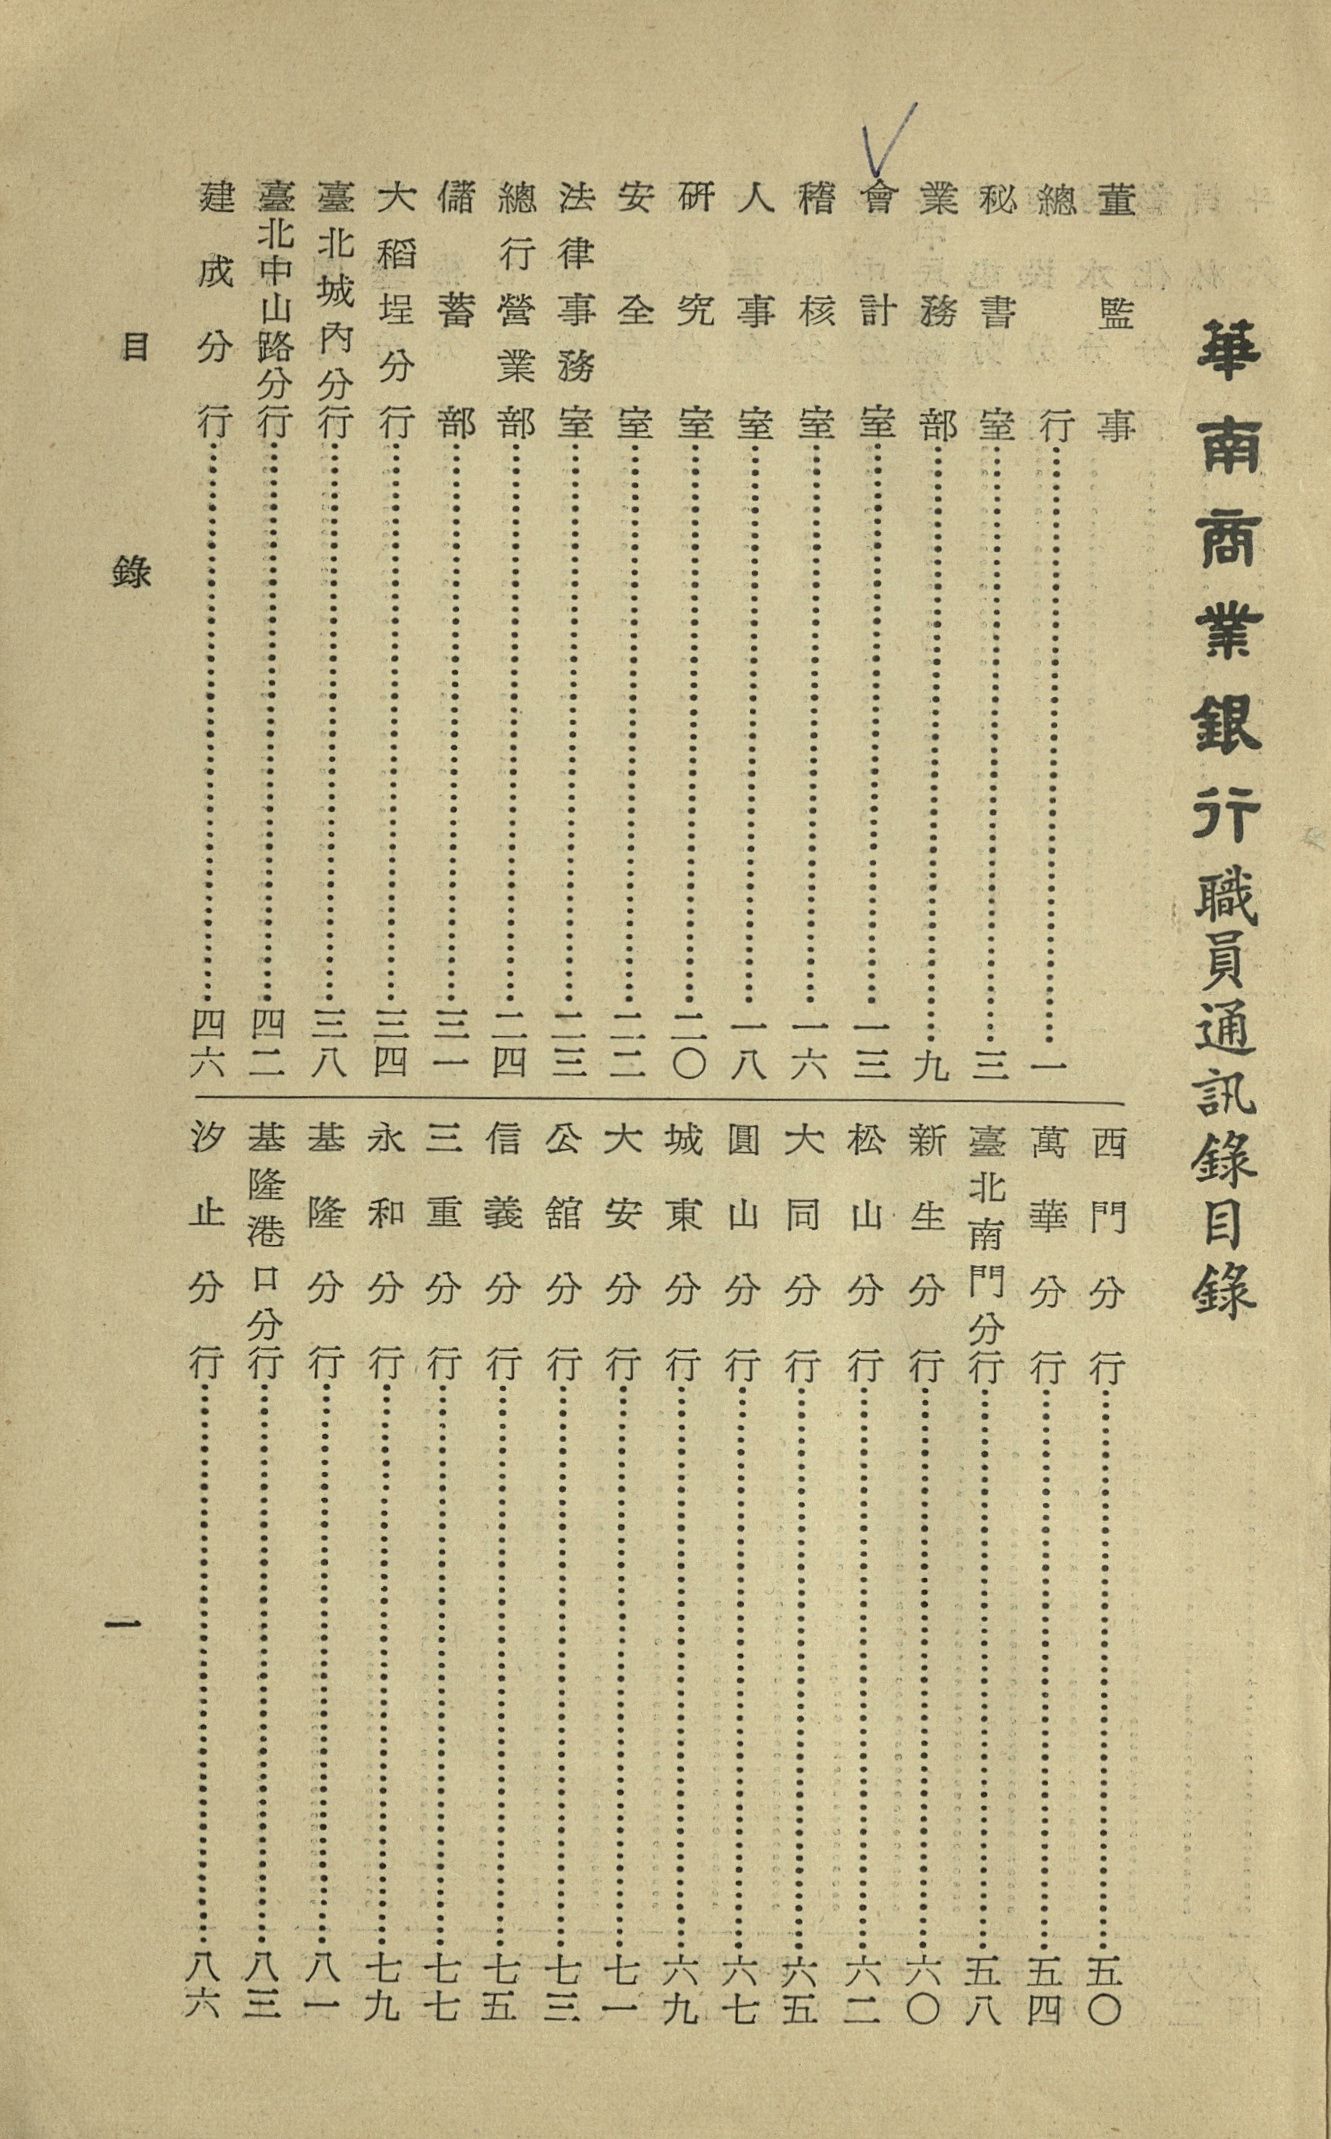 華南商業銀行職員通訊錄目錄
董監事
總行……一
秘書室……三
業務部……九
會計室……一三
稽核室……一六
人事室……一八
研究室……二〇
安全室……二二
法律事務室……二三
總行營業部……二四
儲蓄部……三一
大稻埕分行……三四
臺北城內分行……三八
臺北中山路分行……四二
建成分行……四六
西門分行……五〇
萬華分行……五四
臺北南門分行……五八
新生分行……六〇
松山分行……六二
大同分行……六五
圓山分行……六七
城東分行……六九
大安分行……七一
公舘分行……七三
信義分行……七五
三重分行……七七
永和分行……七九
基隆分行……八一
基隆港口分行……八三
汐止分行……八六
目錄
一